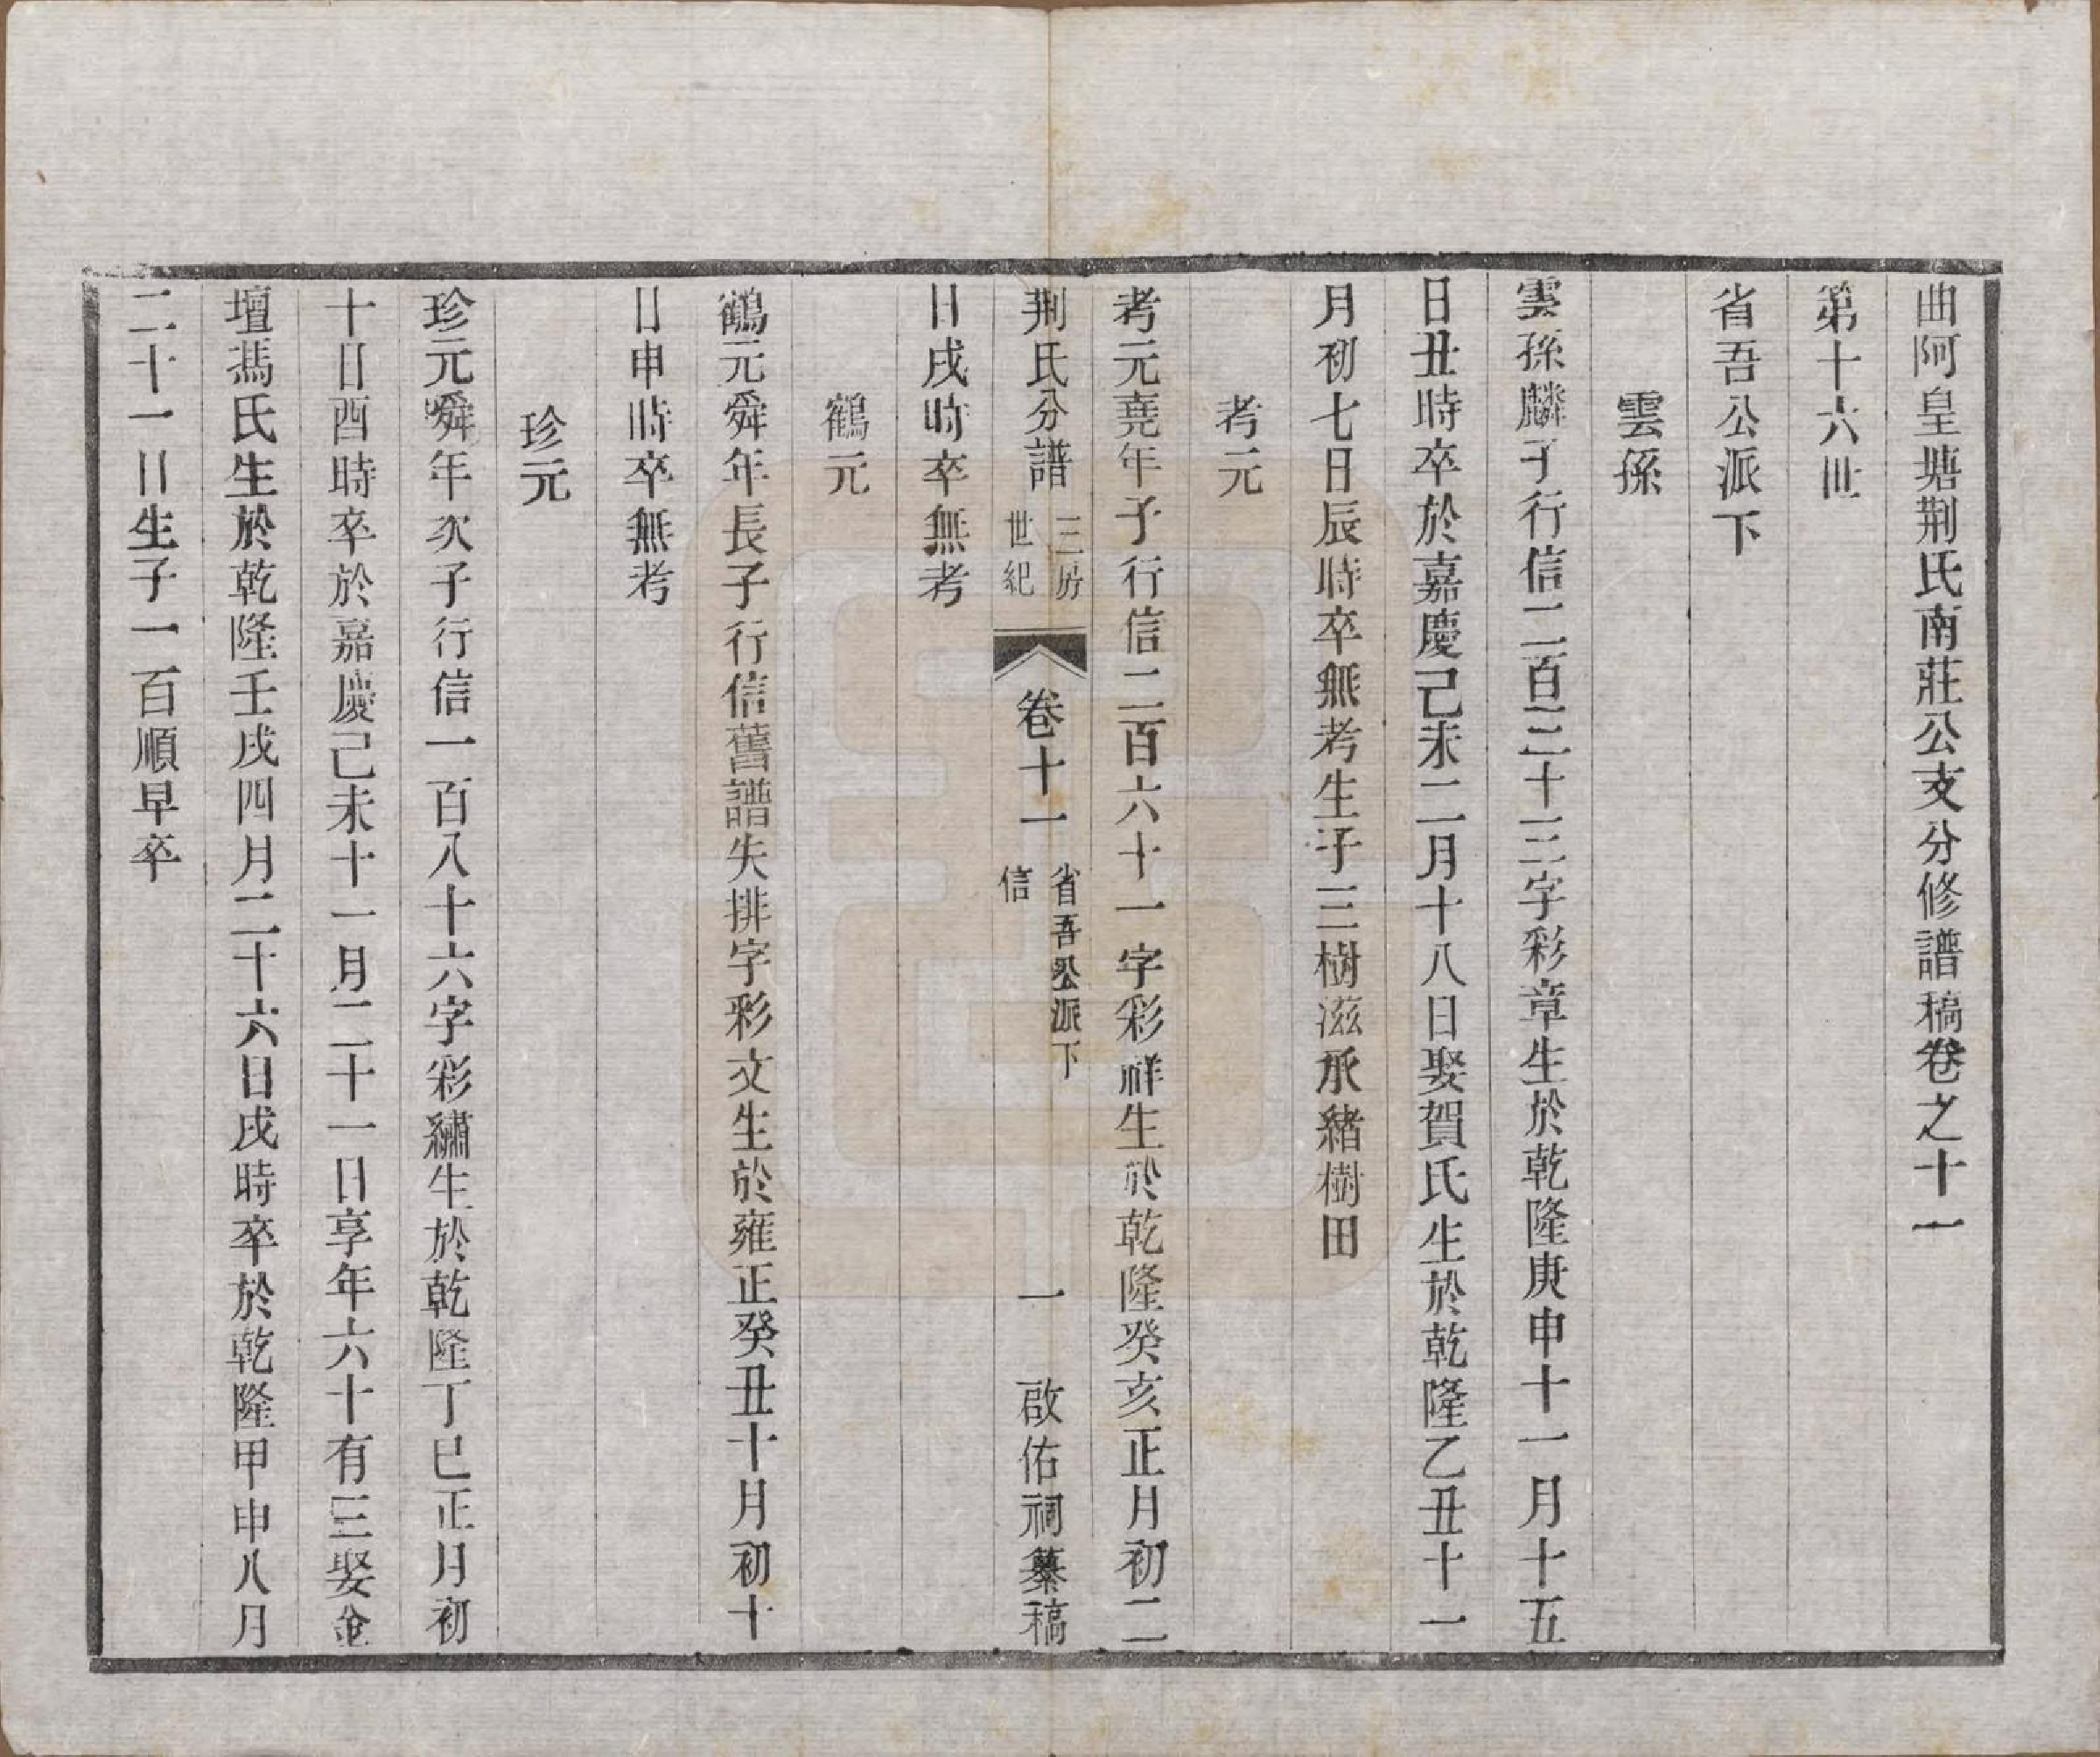 曲阿皇塘荆氏南莊公支分修譜稿卷之十一
第十六世
省吾公派下
雲孫
雲孫麟子行信二百三十三字彩章生於乾隆庚申十一月十五
日丑時卒於嘉慶己未二月十八日娶賀氏生於乾隆乙丑十一
月初七日辰時卒無考生子三樹滋承緒樹田
考元
考元堯年子行信二百六十一字彩祥生於乾隆癸亥正月初二
荆氏分譜
三房
世紀
卷十一
省吾公派下
信
一
啟佑祠纂稿
日戌時卒無考
鶴元
鶴元舜年長子行信舊譜失排字彩文生於雍正癸丑十月初十
日申時卒無考
珍元
珍元舜年次子行信一百八十六字彩繡生於乾隆丁巳正月初
十日酉時卒於嘉慶己未十一月二十一日享年六十有三娶金
壇馮氏生於乾隆壬戌四月二十六日戌時卒於乾隆甲申八月
二十一日生子一百順早卒